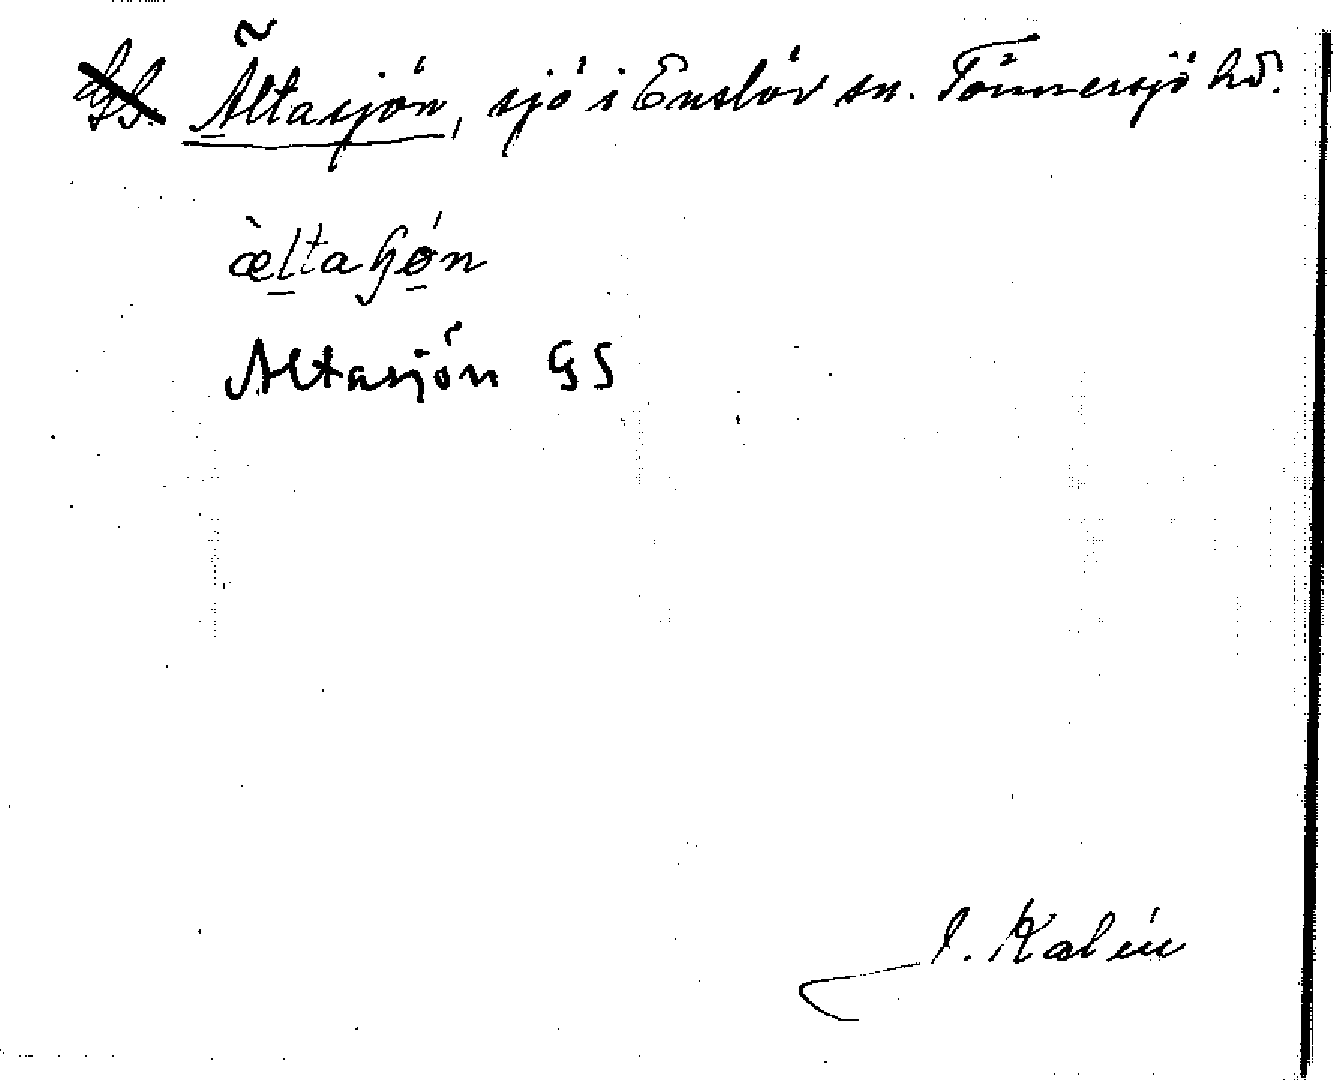 Ältasjön, sjö i Enslöv sn. Tönnersjö hd.
æ̀ltaɧǿn
Altasjön GS
J. Kalén